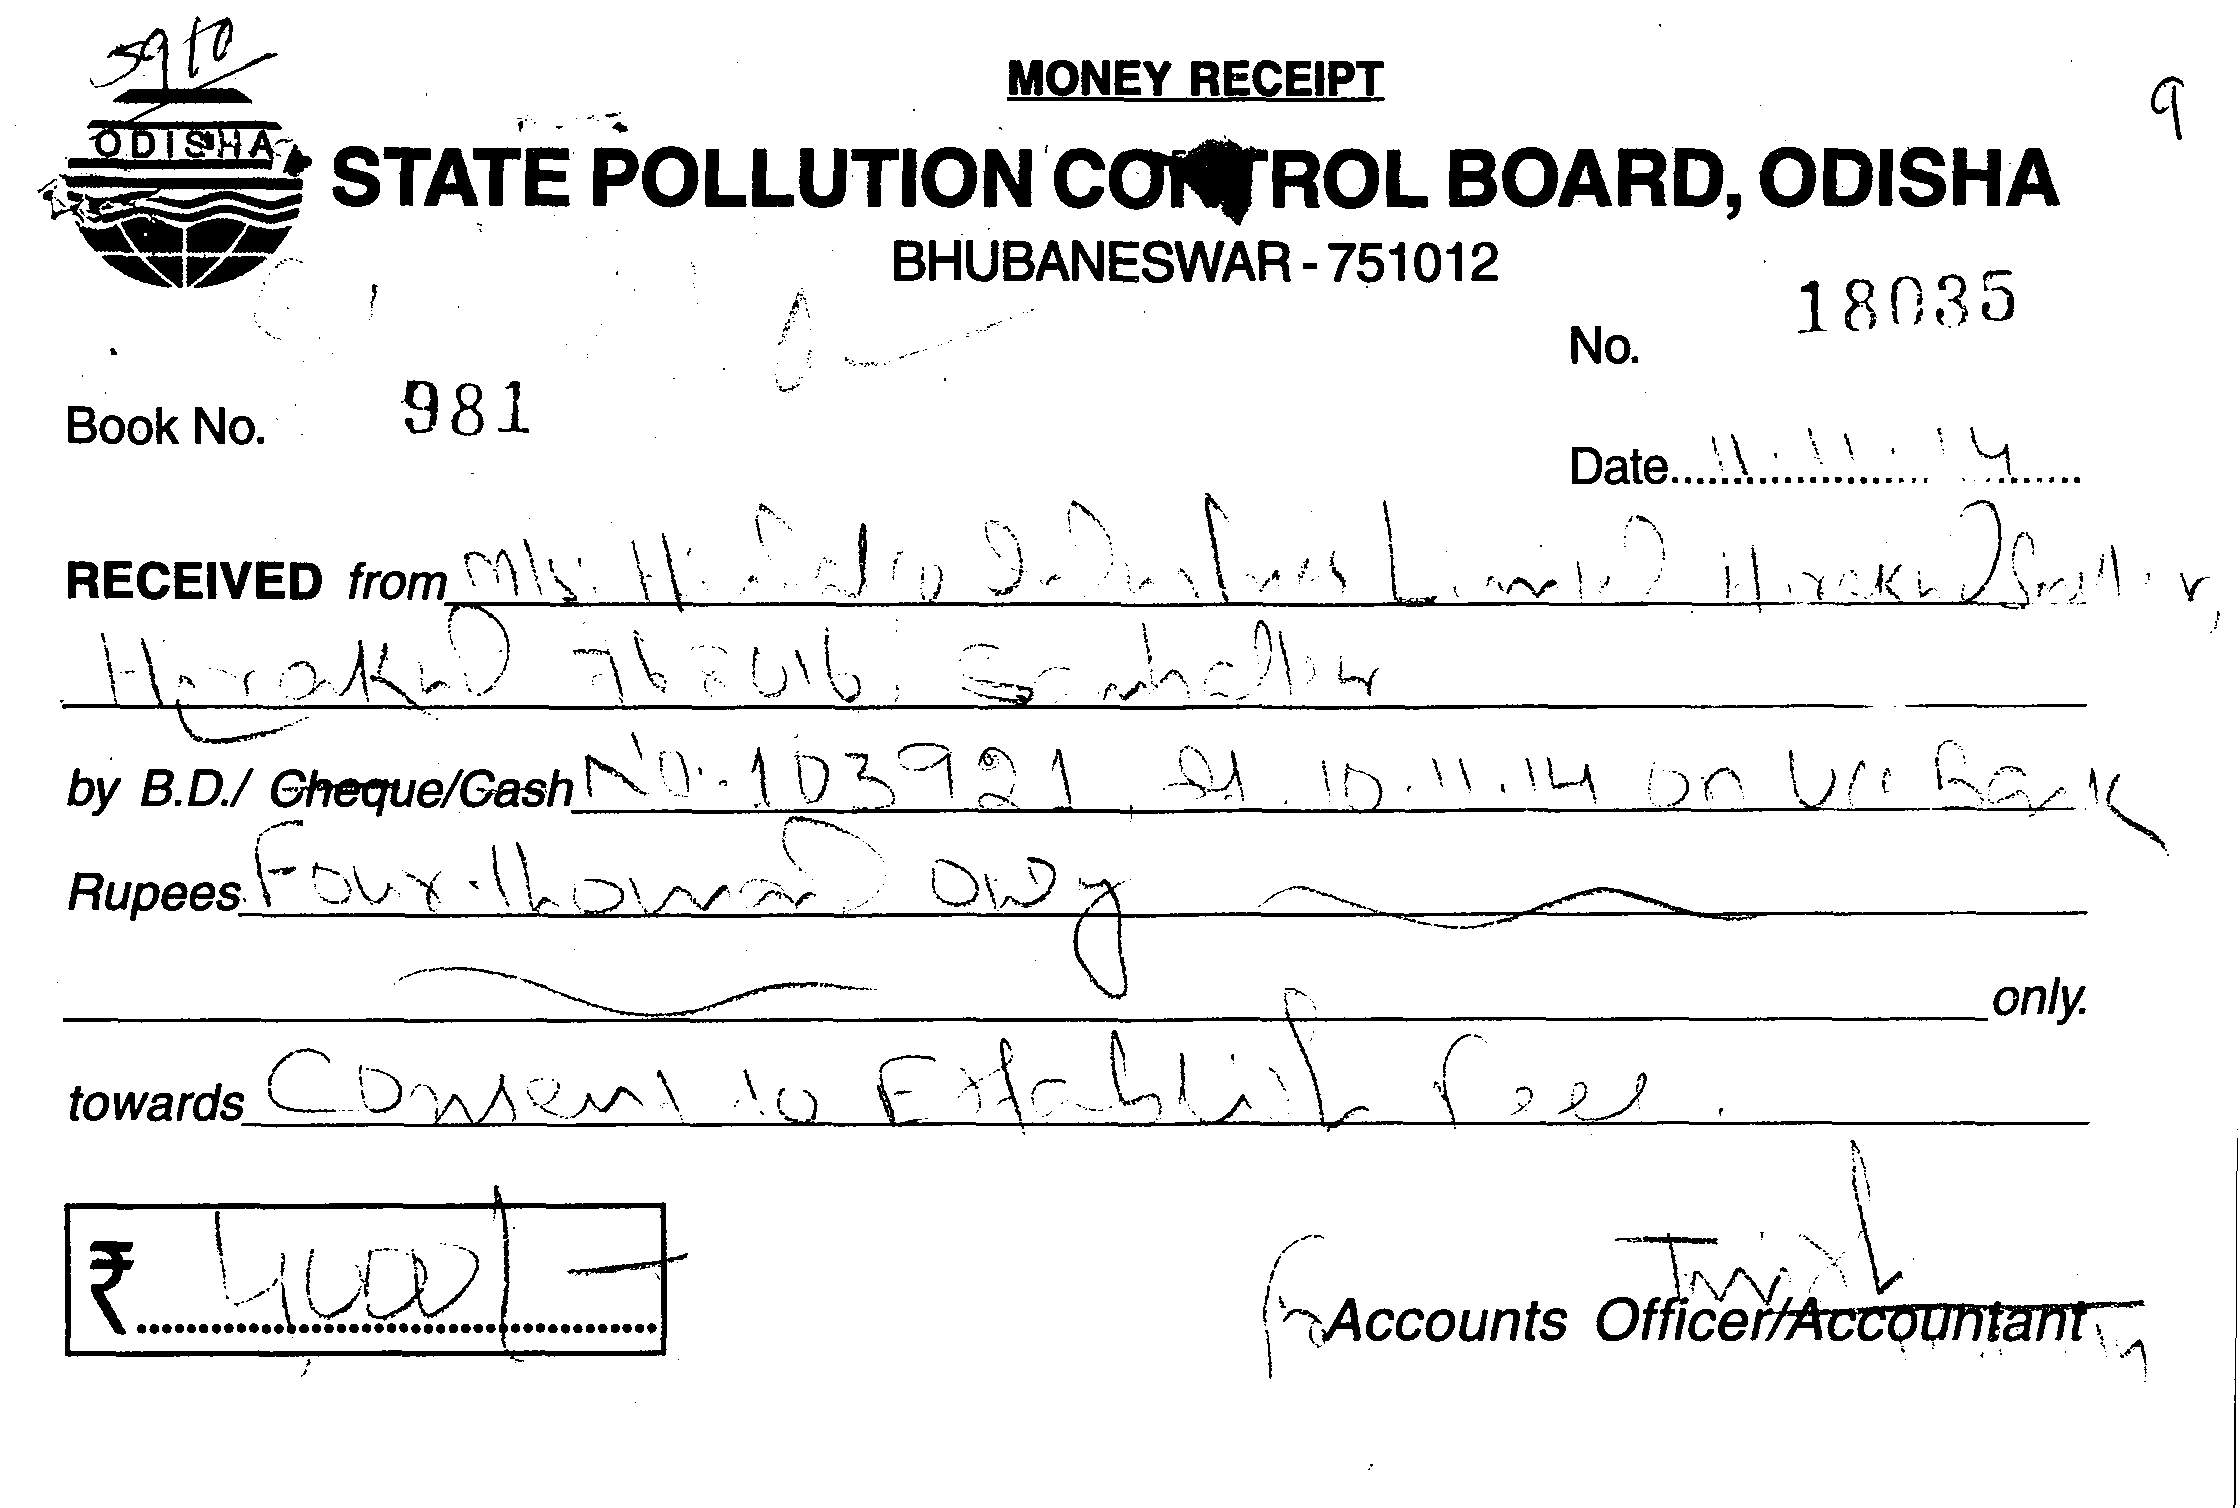 5910
MONEY RECEIPT
9
ODISHA
STATE POLLUTION CONTROL BOARD, ODISHA
BHUBANESWAR - 751012
No. 18035
Book No. 981
Date 11.11.14
RECEIVED from M/s. Hindalco Industries Limited Hirakud Smelter,
Hirakud 768016, Sambalpur
by B.D./ Cheque/Cash No. 103921, dt. 10.11.14 on Uco Bank
Rupees Four thousand only
only.
towards Consent to Establish fees.
₹ 4,000/-
for Accounts Officer/Accountant